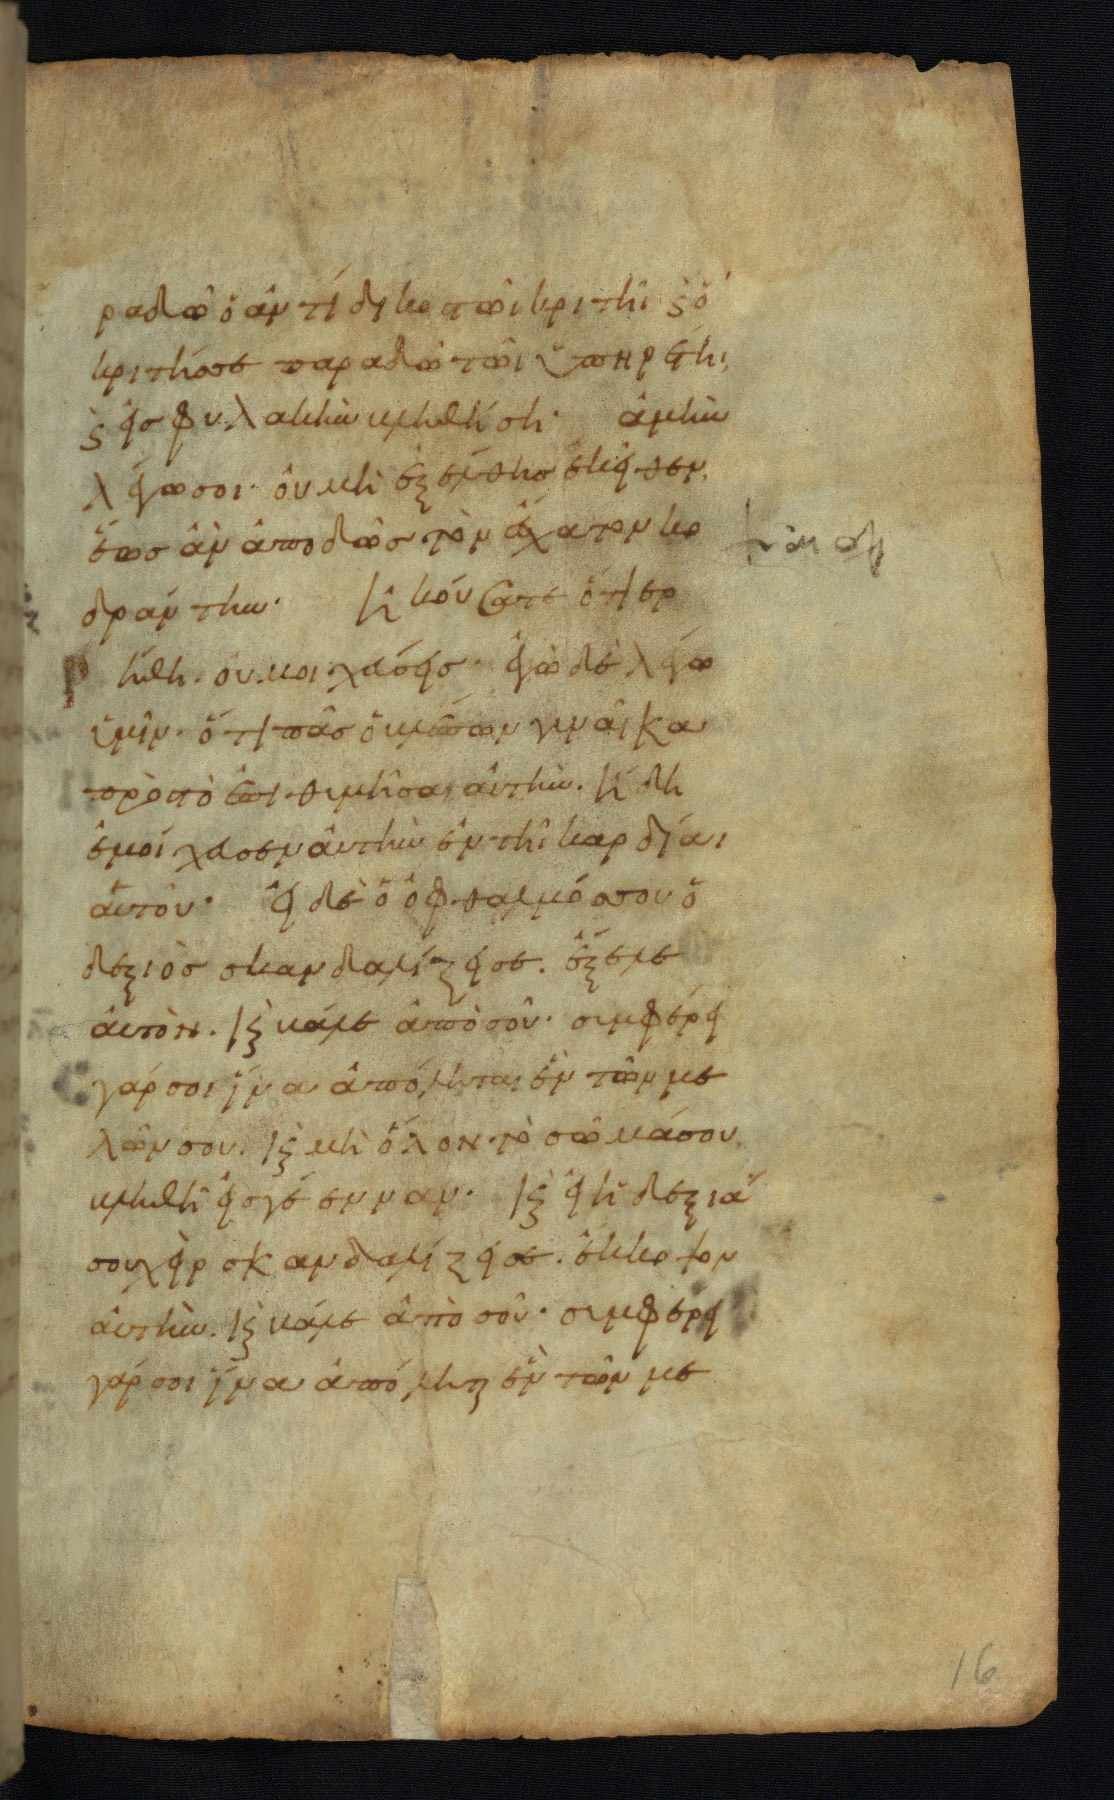 ραδῶ ὁ ἀντίδικο τῶι κριτῆι ϗ ὁ
κριτήσσε παραδῶ τῶι ὑπηρέτηι,
ϗ εἰσ φυλακὴν κληθήση· ἀμὴν
λέγω σοι· οὐ μὴ ἐξέλθησ ἐκεῖθεν,
ἕωσ ἂν ἀποδῶσ τὸν ἔσχατον κο
δράντην· Ἠκούσατε ὅτι ερ
ρήθη· οὐ μοιχεύσεισ· ἐγὼ δὲ λέγω
ὑμῖν· ὅτι πᾶσ ὁ βλέπων γυναῖκα
πρὸσ τὸ ἐπιθυμῆσαι αὐτὴν· ἤδη
ἐμοίχευσεν αὐτὴν ἐν τῆι καρδίαι
αὐτοῦ· Εἰ δὲ ὁ ὀφθαλμόσ σου ὁ
δεξιὸσ σκανδαλίζει σε· ἔξελε
αὐτὸν· ϗ βάλε ἀπὸ σοῦ· συμφέρει
γάρ σοι ἵνα ἀπόληται ἓν τῶν με
λῶν σου· ϗ μὴ ὅλον τὸ σῶμά σου
βληθῆ εἰσ γέενναν· ϗ εἰ ἡ δεξιά
σου χεὶρ σκανδαλίζει σε· ἔκκοψον
αὐτὴν· ϗ βάλε ἀπὸ σοῦ· συμφέρει
γάρ σοι ἵνα ἀπόληται ἓν τῶν με
16